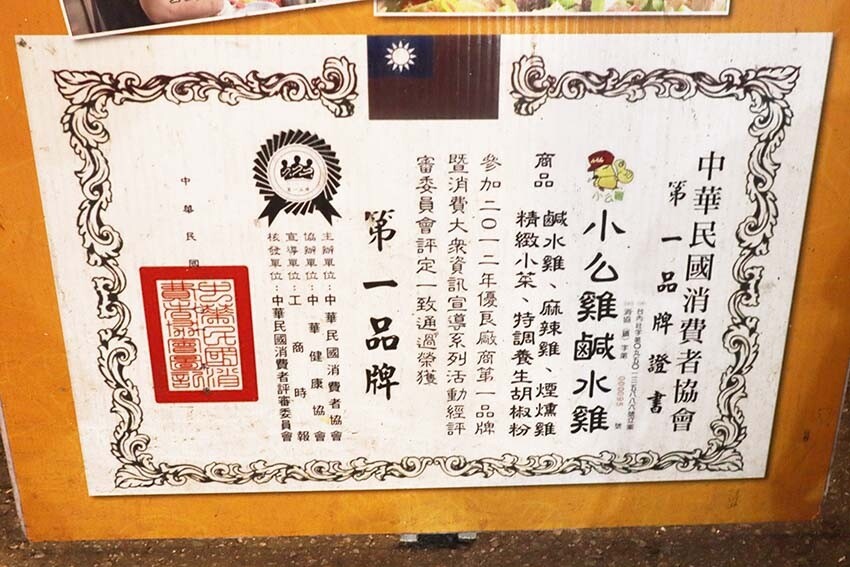 中華民國消費者協會
第一品牌證書
小公雞
小公雞鹹水雞
商品
鹹水雞、麻辣雞、煙燻雞
精緻小菜、特調養生胡椒粉
參加二〇一二年優良廠商第一品牌
暨消費大衆資訊宣導系列活動經評
審委員會評定一致通過榮獲
第一品牌
主辦單位:中華民國消費者協會
協辦單位:中華健康協會
宣導單位:工商時報
核發單位:中華民國消費者評審委員會
中華民國